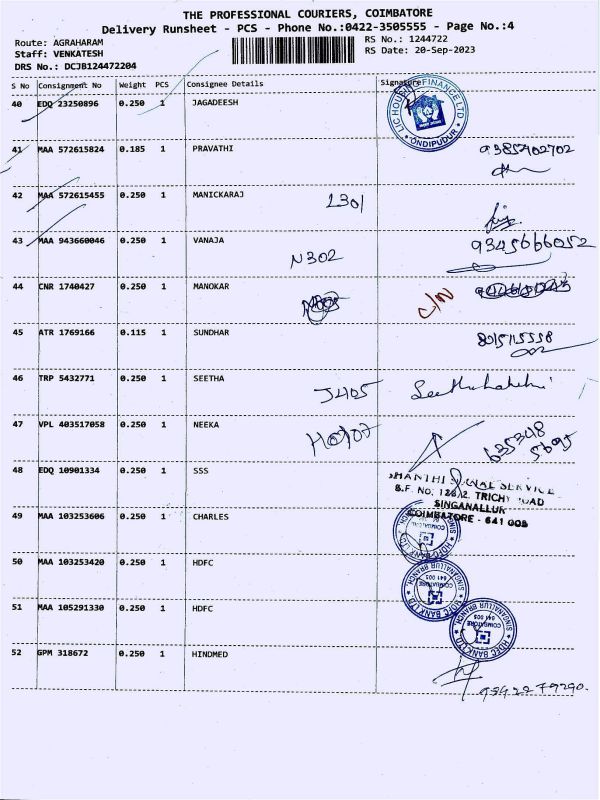 THE PROFESSIONAL COURIERS, COIMBATORE
Delivery Runsheet - PCS - Phone No.:0422-3505555 - Page No.:4
Route: AGRAHARAM
RS No.: 1244722
Staff: VENKATESH
RS Date: 20-Sep-2023
DRS No.: DCJB124472204
S No Consignment No Weight PCS Consignee Details Signature
40 EDQ 23250896 0.250 1 JAGADEESH
LIC HOUSING FINANCE LTD
ONDIPUDUR
41 MAA 572615824 0.185 1 PRAVATHI 9385402702
42 MAA 572615455 0.250 1 MANICKARAJ L301
43 MAA 943660046 0.250 1 VANAJA N302 9345666052
44 CNR 1740427 0.250 1 MANOKAR C/N
45 ATR 1769166 0.115 1 SUNDHAR 8015115558
46 TRP 5432771 0.250 1 SEETHA J405
47 VPL 403517058 0.250 1 NEEKA 635348
5695
48 EDQ 10901334 0.250 1 SSS
SHANTHI SERVICE
S.F. NO. TRICHY ROAD
SINGANALLUR
COIMBATORE - 641 005
49 MAA 103253606 0.250 1 CHARLES
50 MAA 103253420 0.250 1 HDFC
HDFC BANK LTD.
SINGANALLUR BRANCH,
COIMBATORE
641 005
51 MAA 105291330 0.250 1 HDFC
HDFC BANK LTD.
SINGANALLUR BRANCH,
COIMBATORE
641 005
52 GPM 318672 0.250 1 HINDMED